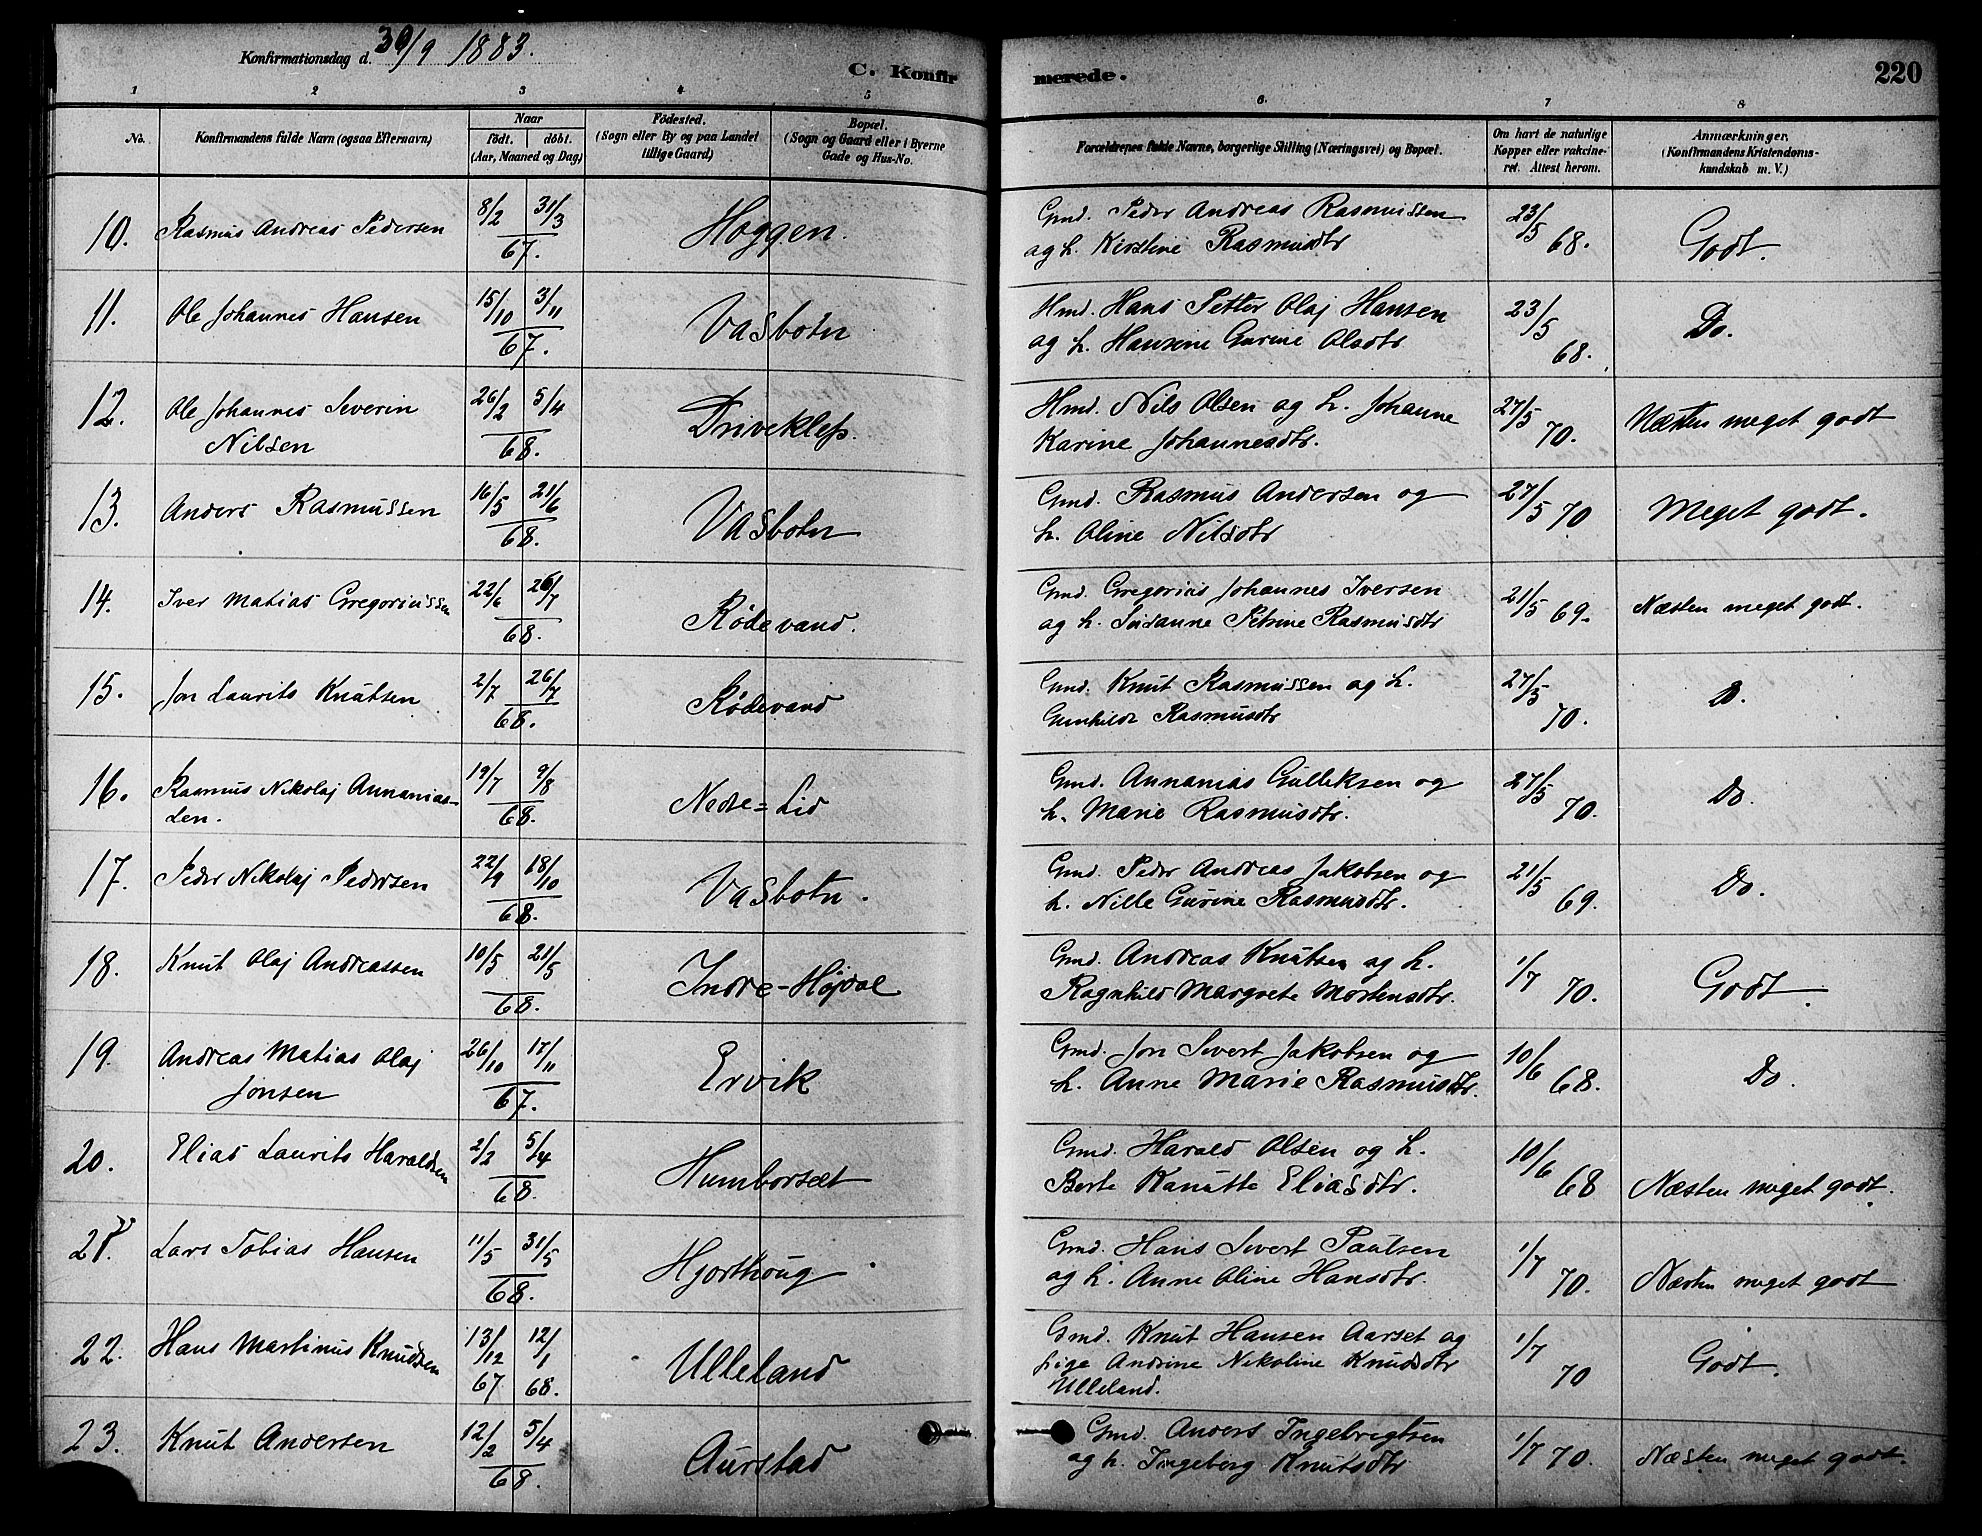 Konfirmationsdag d. 30/9 1883.
C. Konfirmerede.
220
1 2 3 4 5 6. 7 8
No.
Konfirmandens fulde Navn (ogsaa Efternavn)
Naar
födt. döbt.
(Aar, Maaned og Dag)
Födested.
(Sogn eller By og paa Landet
tillige Gaard)
Bopæl.
(Sogn og Gaard eller i Byerne
Gade og Hus-No.
Forældrenes fulde Navne, borgerlige Stilling (Næringsvei) og Bopæl.
Om havt de naturlige
Kopper eller vakcine-
ret. Attest herom.
Anmærkninger.
(Konfirmandens Kristendoms-
kundskab m. V.)
10. Rasmus Andreas Pedersen 8/2 31/3 67. Hoggen. Gmd. Peder Andreas Rasmussen
og h. Kirstine Rasmusdtr 23/5 68. Godt.
11. Ole Johannes Hansen 15/10 3/11 67. Vasbotn Hmd. Hans Petter Olaj Hansen
og h. Hansine Gurine Olsdtr 23/5 68. Do.
12. Ole Johannes Severin
Nilsen 26/2 5/4 68. Driveklep. Hmd. Nils Olsen og h. Johanne
Karine Johannesdtr. 27/5 70. Næsten meget godt
13. Anders Rasmussen 16/5 21/6 68. Vasbotn Gmd. Rasmus Andersen og
h. Oline Nilsdtr 27/5 70 Meget godt.
14. Iver Matias Gregoriussen 22/6 26/7 68. Rødevand. Gmd. Gregorius Johannes Iversen
og h. Susanne Petrine Rasmusdtr 21/5 69. Næsten meget godt.
15. Jon Laurits Knutsen 2/7 26/7 68. Rødevand Gmd. Knut Rasmussen og h.
Gunhild Rasmusdtr 27/5 70. D.
16. Rasmus Nikolaj Annanias-
sen. 19/7 9/8 68. Nedre=Lid Gmd. Annanias Gulleksen og
h. Marie Rasmusdtr. 27/5 70. Do.
17. Peder Nikolaj Pedersen 22/9 18/10 68. Vasbotn. Gmd. Peder Andreas Jakobsen og
h. Nille Gurine Rasmusdtr. 21/5 69. Do.
18. Knut Olaj Andreassen 10/5 21/5 68. Indre-Højdal Gmd. Andreas Knutsen og h.
Ragnhild Margrete Mortensdtr. 1/7 70. Godt.
19. Andreas Matias Olaj
Jonsen 26/10 17/11 67. Ervik Gmd. Jon Sivert Jakobsen og
h. Anne Marie Rasmusdtr. 10/6 68. Do.
20. Elias Laurits Haraldsen 2/2 5/4 68. Humborset Gmd. Harald Olsen og h.
Berte Kanutte Eliasdtr. 10/6 68 Næsten meget godt.
21. Lars Tobias Hansen 11/5 31/5 68. Hjorthoug Gmd. Hans Sivert Paulsen
og h. Anne Oline Hansdtr. 1/7 70. Næsten meget godt
22. Hans Martinus Knudsen 13/12 67 12/1 68. Ulleland Gmd. Knut Hansen Aarset og
pige Andrine Nikoline Knudsdtr
Ulleland. 1/7 70 Godt.
23. Knut Andersen 12/2 5/4 68. Aurstad Gmd. Anders Ingebrigtsen
og h. Ingeborg Knutsdtr 1/7 70. Næsten meget godt.